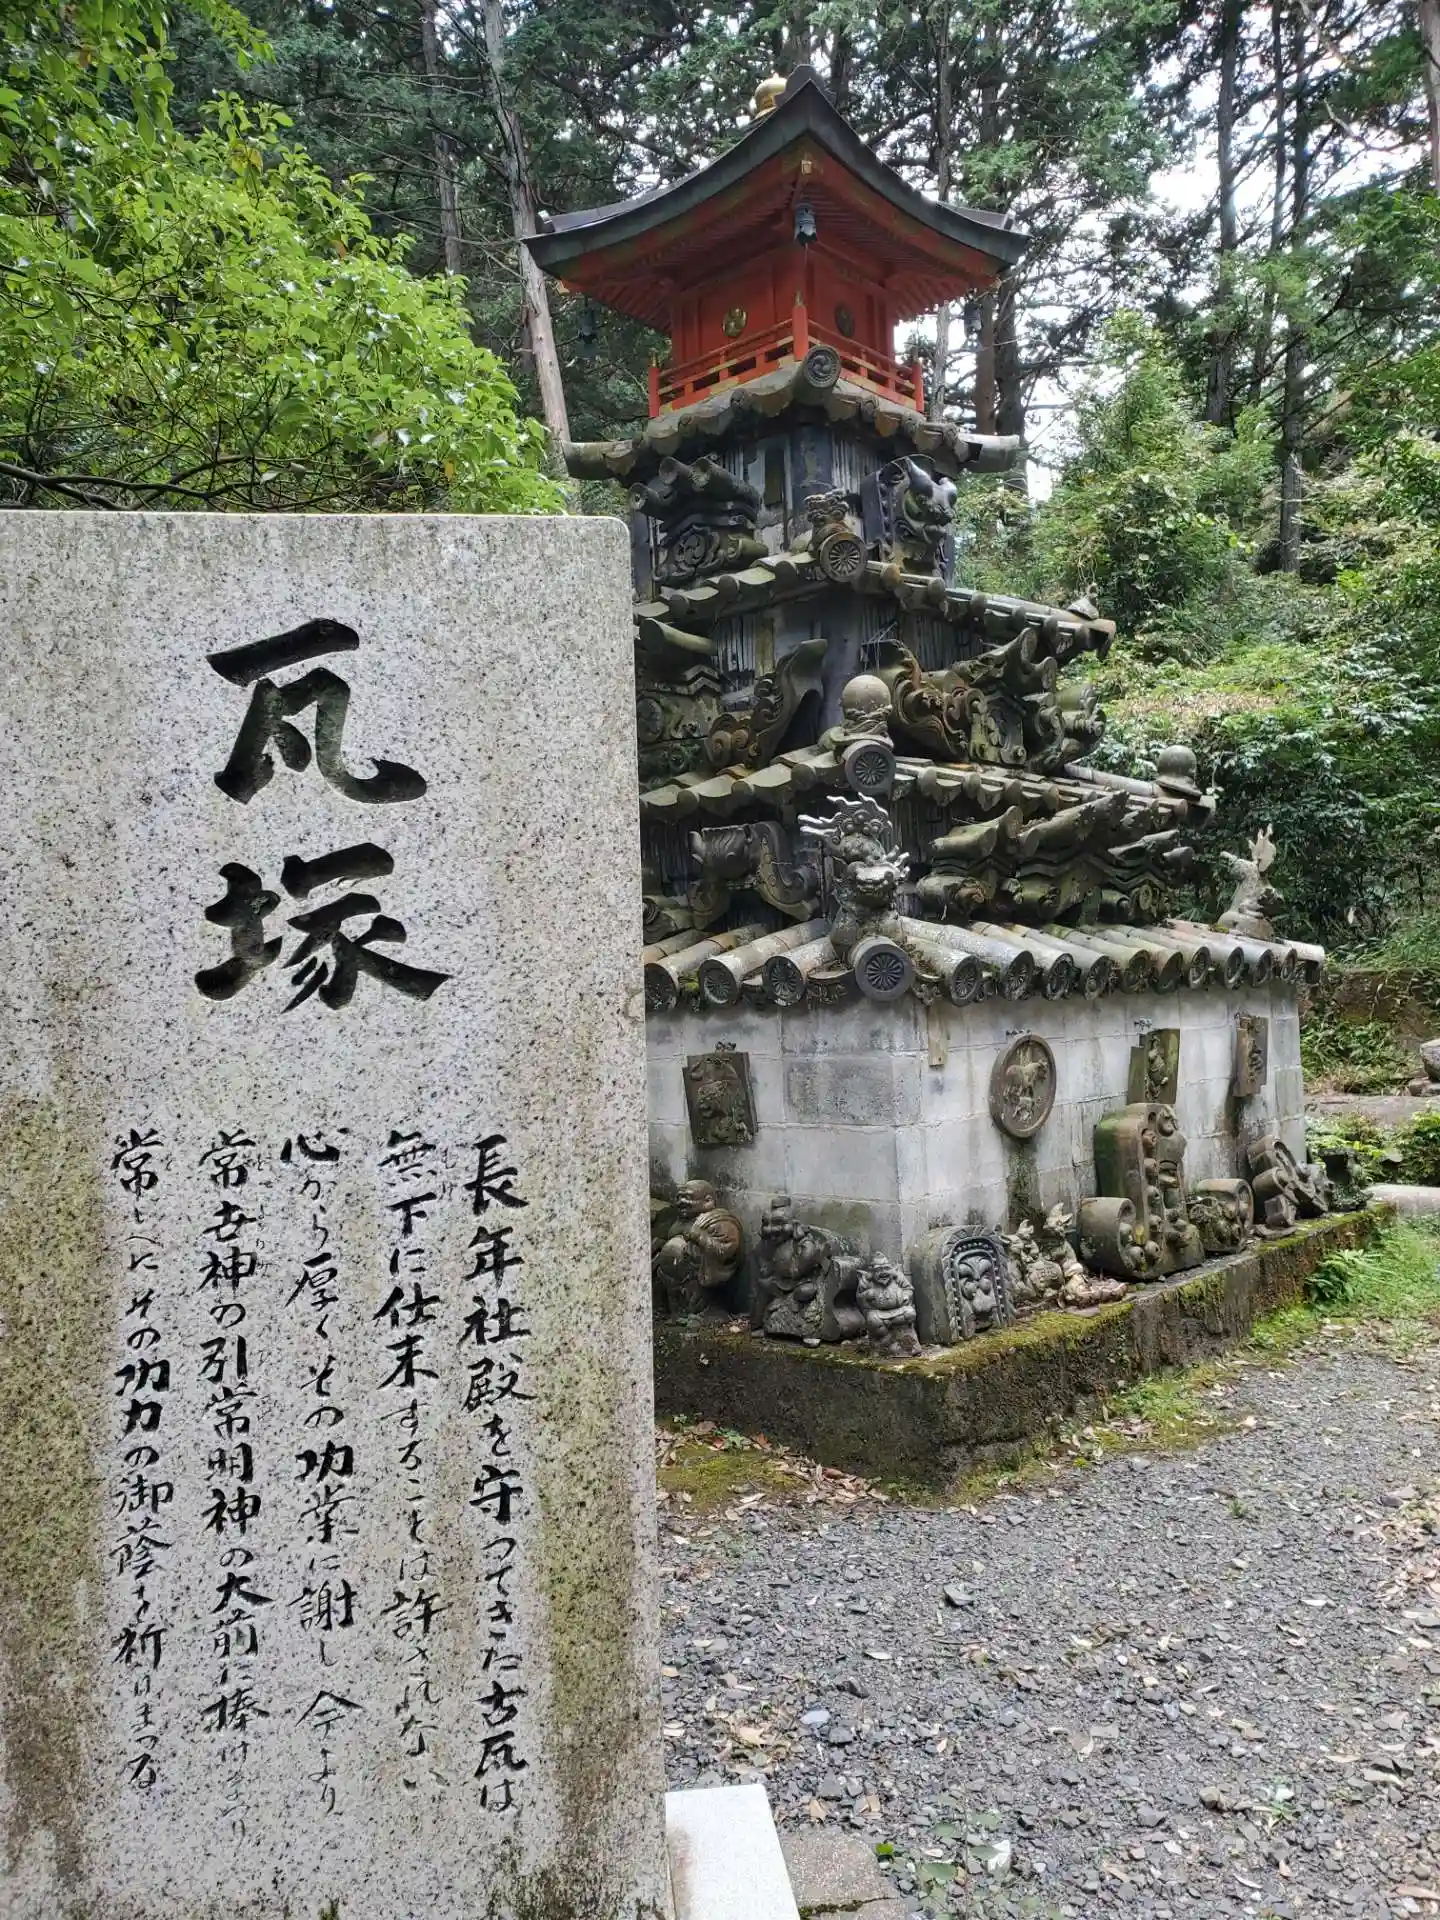 瓦塚
長年社殿を守ってきた古瓦は
無下に仕末することは許されない
心から厚くその功業に謝し今より
常世神の引常明神の大前に捧げまつり
常しへにその功力の御蔭を祈りまつる